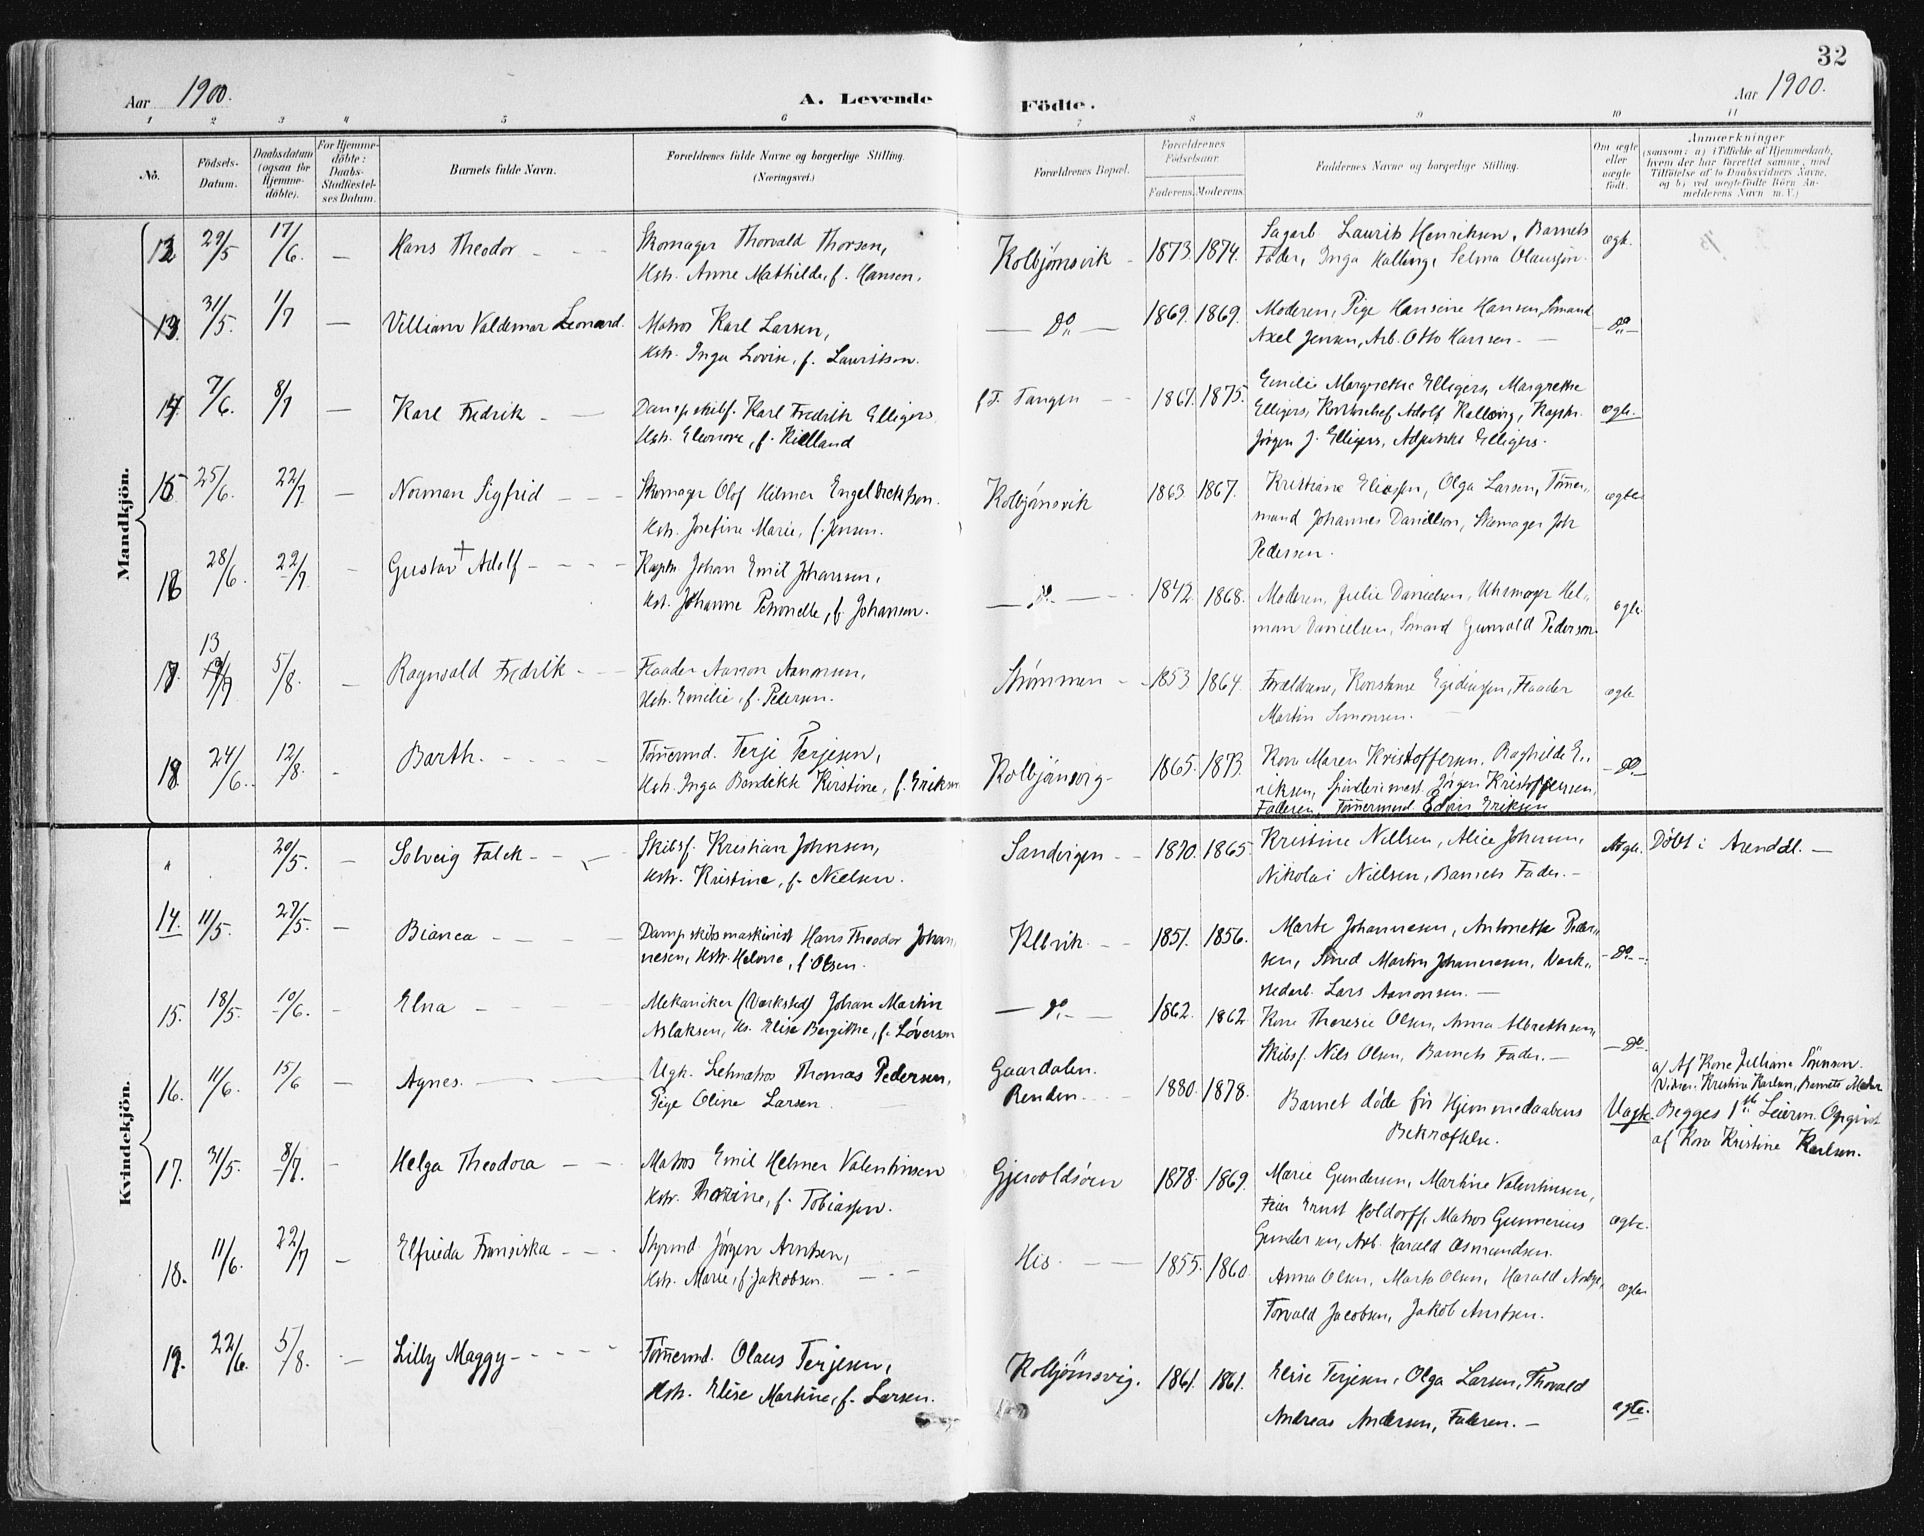 32
Aar 1900.
A. Levende Födte.
Aar 1900.
1 2 3 4 5 6 7 8 9 10 11
No.
Födsels-Datum.
Daabsdatum (ogsaa for Hjemme-döbte).
For Hjemme-döbte: Daabs-Stadfæstel-ses Datum.
Barnets fulde Navn.
Forældrenes fulde Navne og borgerlige Stilling. (Næringsvei.)
Forældrenes Bopæl.
Forældrenes Födselsaar.
Faderens. Moderens.
Faddernes Navne og borgerlige Stilling.
Om ægte eller uægte födt.
Anmærkninger (saasom: a) i Tilfælde af Hjemmedaab, hvem der har forrettet samme, med Tilföielse af to Daabsvidners Navne, og b) ved uægtefödte Börn An-melderens Navn m. V.)
Mandkjön.
12 29/5 17/6 — Hans Theodor - - Skomager Thorvald Thorsen, Kolbjørnsvik - 1873. 1874. Sagarb. Laurits Henriksen, Barnets ægt.
Hstr. Anne Mathilde, f. Hansen. Fader, Inga Kalling, Selma Olaussen.
13. 31/5. 1/7 — Villiam Valdemar Leonard. Matros Karl Larsen, — Do — 1869. 1869. Moderen, Pige Hansine Hansen, Smand — Do —
Hstr. Inga Lovise, f. Lauritsen. Axel Jensen, Arb. Otto Hansen. —
14. 7/6. 8/7 — Karl Fredrik - Dampskibsf. Karl Fredrik Elligers f. T. Tangen - 1867. 1875. Emilie Margrethe Elligers, Margrethe ægte.
Hstr. Elenore, f. Kielland Elligers, Adolf Kallevig, Kapt.
Jørgen J. Elligers, Elligers.
15 25/6. 22/7 — Norman Sigfrid - - Skomager Olof Hilmer Engelbrektson. Kolbjørnsvik 1863 1867. Kristiane Eliassen, Olga Larsen, Tømer- ægte
Hstr. Josefine Marie, f. Jensen. mand Johannes Danielsen, Skomager Joh
Pedersen.
16 28/6. 22/7. - Gustav + Adolf - - - Kaptn Johan Emil Johansen, — Do. — 1842. 1868. Moderen, Julie Danielsen, Uhrmager Hel- ægte.
Hst. Johanne Petronelle, f. Johansen. man Danielsen, Smand Gunvald Pedersen.
17. 13/7 5/8. — Ragnvald Fredrik - - Flaader Aanon Aanonsen, Strømmen - 1853 1864. Forældrene, Konstanse Egidiussen, Flaader ægte
Hstr. Emilie, f. Pedersen. Martin Simonsen.
18. 24/6. 12/8. - Barth. - - - Tømermd. Terje Terjesen, Kolbjørnsvig - 1865. 1873. Kone Maren Kristoffersen, Raghilde E- — Do —
Hstr. Inga Bendikte Kirstine, f. Eriksen riksen, Jörgen Kristoffersen,
Faderen, Tømermand Edvin Eriksen
Kvindekjön.
" 20/5. — Solveig Falck - - Skibsf. Kristian Johnsen, Sandvigen - - 1870. 1865. Kristine Nielsen, Alice Johnsen, Ægte. Döbt i Arendal. —
Hstr. Kristine, f. Nielsen. Nikolai Nielsen, Barnets Fader. -
14. 11/5. 27/5. — Bianca - - - Dampskibsmaskinist Hans Theodor Johan- Klbvik. - - 1851. 1856. Marte Johannesen, Antonette Peder- — Do —
nesen, Hstr. Helene, f. Olsen. sen, Smed Martin Johannesen, Verk-
stedarb. Lars Aanonsen. —
15. 18/5. 10/6. — Elna - - Mekaniker (Værksted) Johan Martin — Do. — 1862. 1862 Kone Theresie Olsen, Anna Albrethsen, — Do.
Aslaksen, Hs. Elise Bergitthe, f. Løverson Skibsf. Nils Olsen, Barnets Fader. —
16. 11/6. 15/6 — Agnes. — Ugk. Letmatros Thomas Pedersen, Gaardalen. 1880. 1878. Barnet døde før Hjemmedaabens Uægte.
Pige Oline Larsen Renden. Bekræftelse.
a/ Af Kone Julliane Sörensen. Vidner. Kristine Karlsen, Barnets Moder
Begges 1ste Leierm. Opgivet
af Kone Kristine Karlsen.
17. 31/5. 8/7. - Helga Theodora - - Matros Emil Helmer Valentinsen Gjervoldsøen 1878. 1869. Marie Gundersen, Martine Valentinsen, ægte.
Hstr. Thorine, f. Tobiassen. Feier Ernst Holdorff, Matros Gunnerius
Gundersen, Arb. Harald Osmundsen.
18. 11/6. 22/7 — Elfrieda Fransiska - - Styrmd Jørgen Arntsen, His. — 1855. 1860. Anna Olsen, Marte Olsen, Harald ægte
Hstr. Marie, f. Jakobsen. Torvald Jacobsen, Jakob Arntsen.
19. 22/6. 5/8. - Lilly Maggy - - - Tømermd. Olaus Terjesen, Kolbjørnsvig. 1861. 1861. Elise Terjesen, Olga Larsen, Thorvald ægte.
Hstr. Elise Martine, f. Larsen. Andreas Andersen, Faderen. —